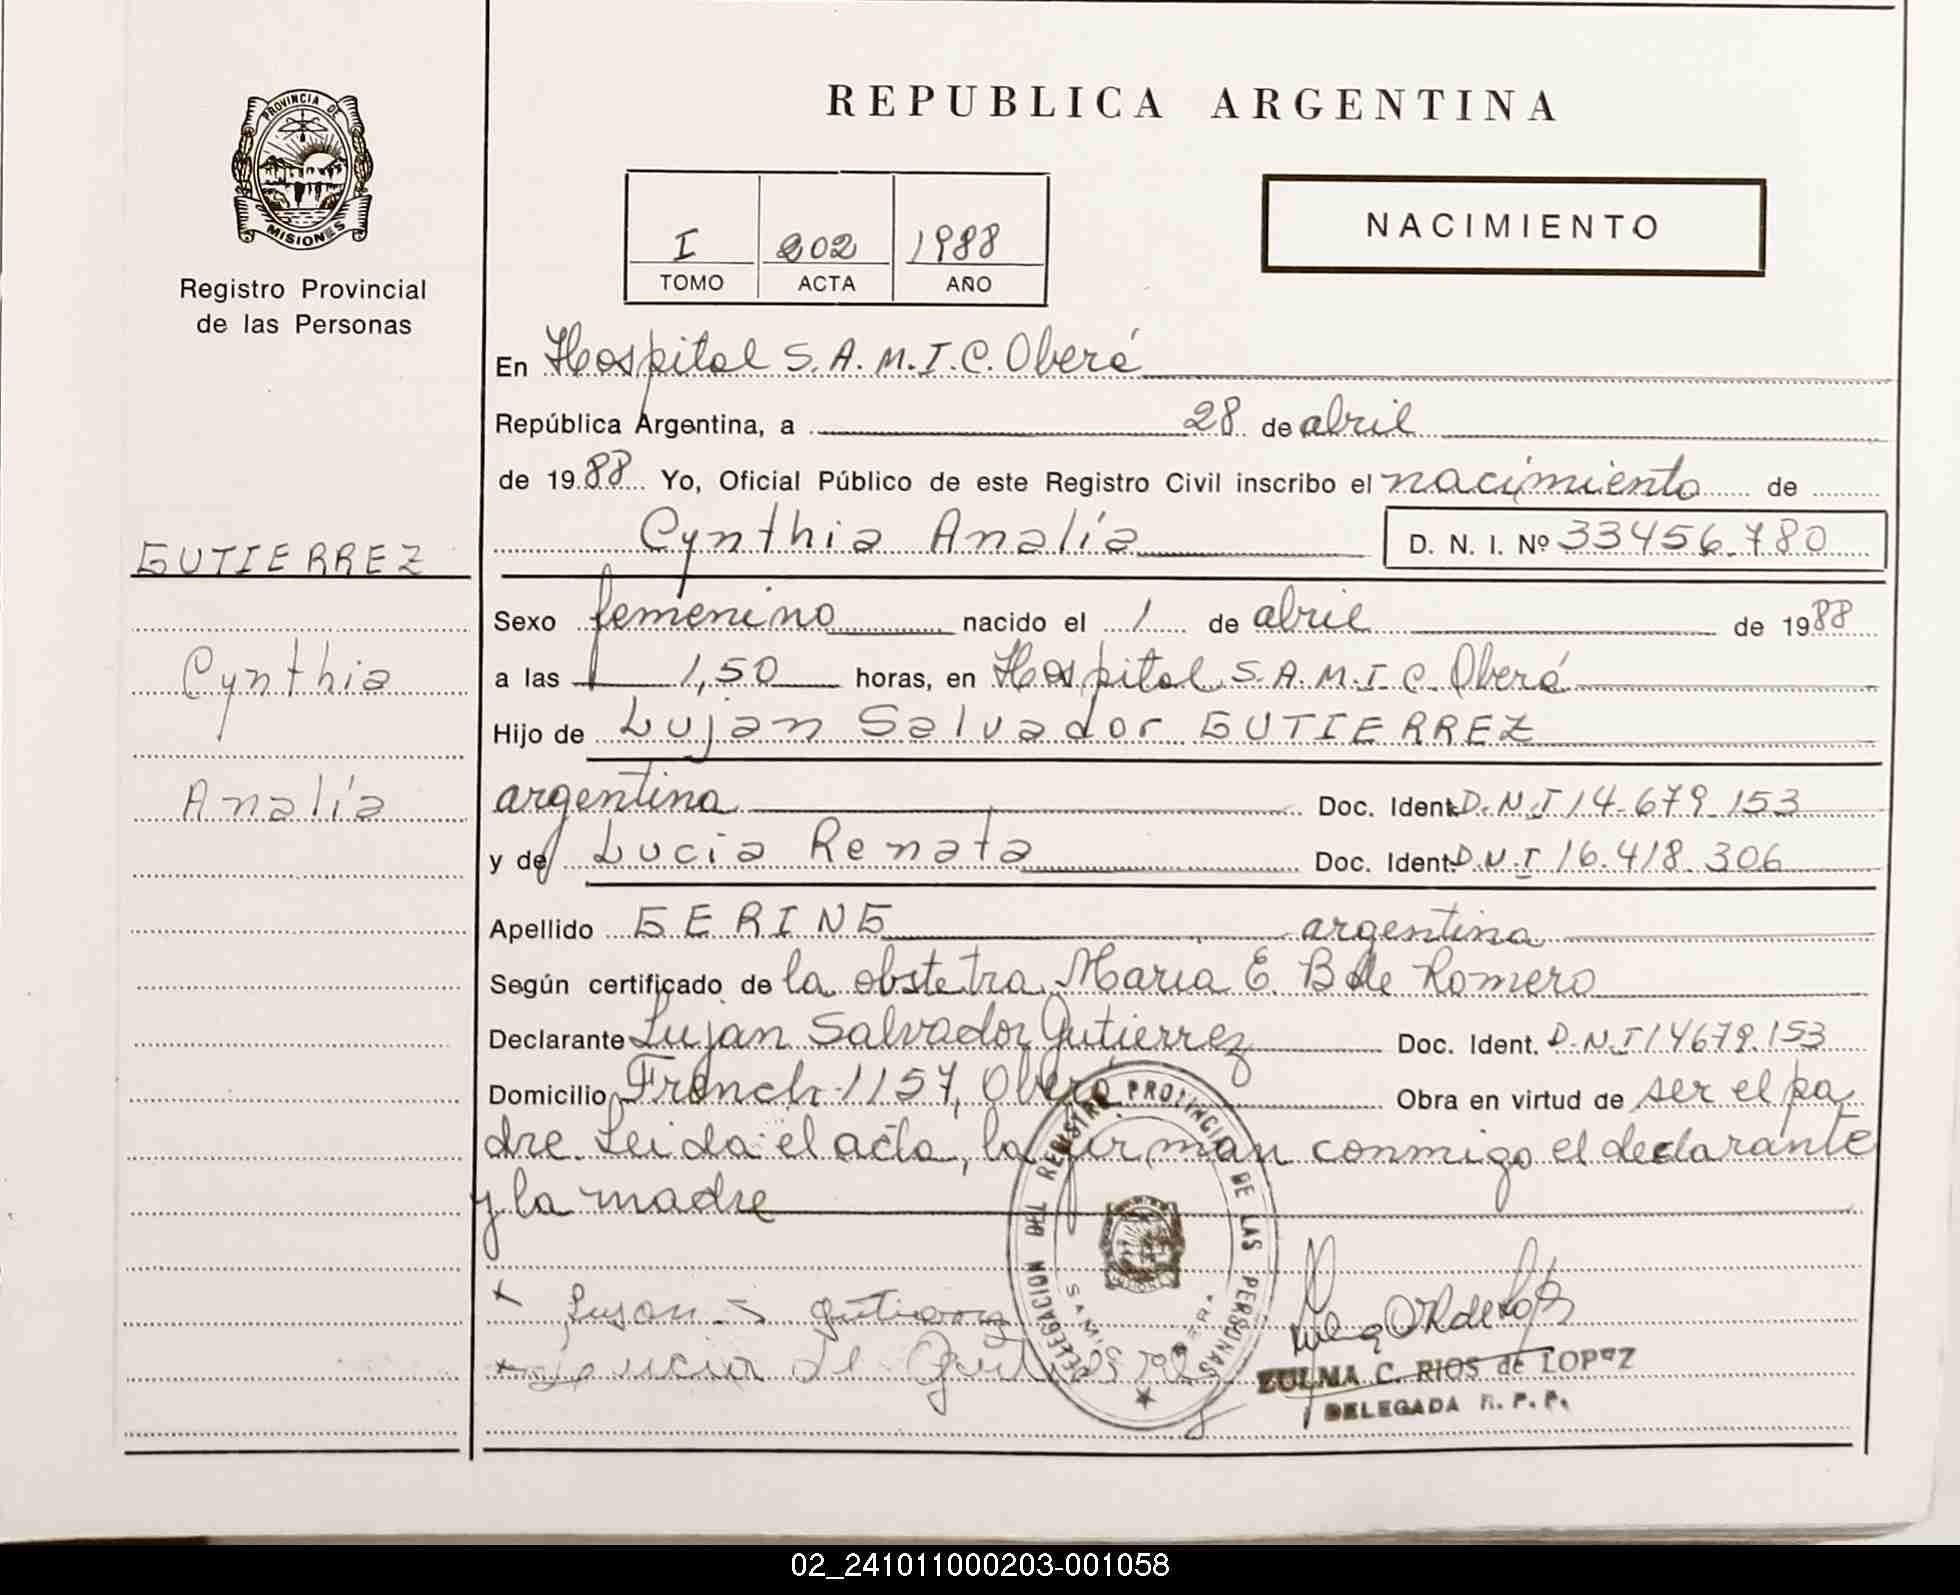 REPUBLICA ARGENTINA
PROVINCIA DE
MISIONES
Registro Provincial
de las Personas
I 202 1988
TOMO ACTA AÑO
NACIMIENTO
En Hospital S.A.M.I.C. Oberá
República Argentina, a 28 de abril
de 1988 Yo, Oficial Público de este Registro Civil inscribo el nacimiento de
Cynthia Analía D. N. I. Nº 33456.780
GUTIERREZ
Cynthia
Analía
Sexo femenino nacido el 1 de abril de 1988
a las 1,50 horas, en Hospital S.A.M.I.C. Oberá
Hijo de Lujan Salvador GUTIERREZ
argentina Doc. Ident. D.N.I 14.679.153
y de Lucia Renata Doc. Ident. D.N.I 16.418.306
Apellido GERING argentina
Según certificado de la obstetra Maria E. B de Romero
Declarante Lujan Salvador Gutierrez Doc. Ident. D.N.I 14679.153
Domicilio French 1157, Oberá Obra en virtud de ser el pa
dre. Leida el acta, la firman conmigo el declarante
y la madre
DELEGACION DEL REGISTRO PROVINCIAL DE LAS PERSONAS
Lujan S gutierrez
Lucia de
ZULMA C. RIOS de LOPEZ
DELEGADA R. P. P.
02_241011000203-001058